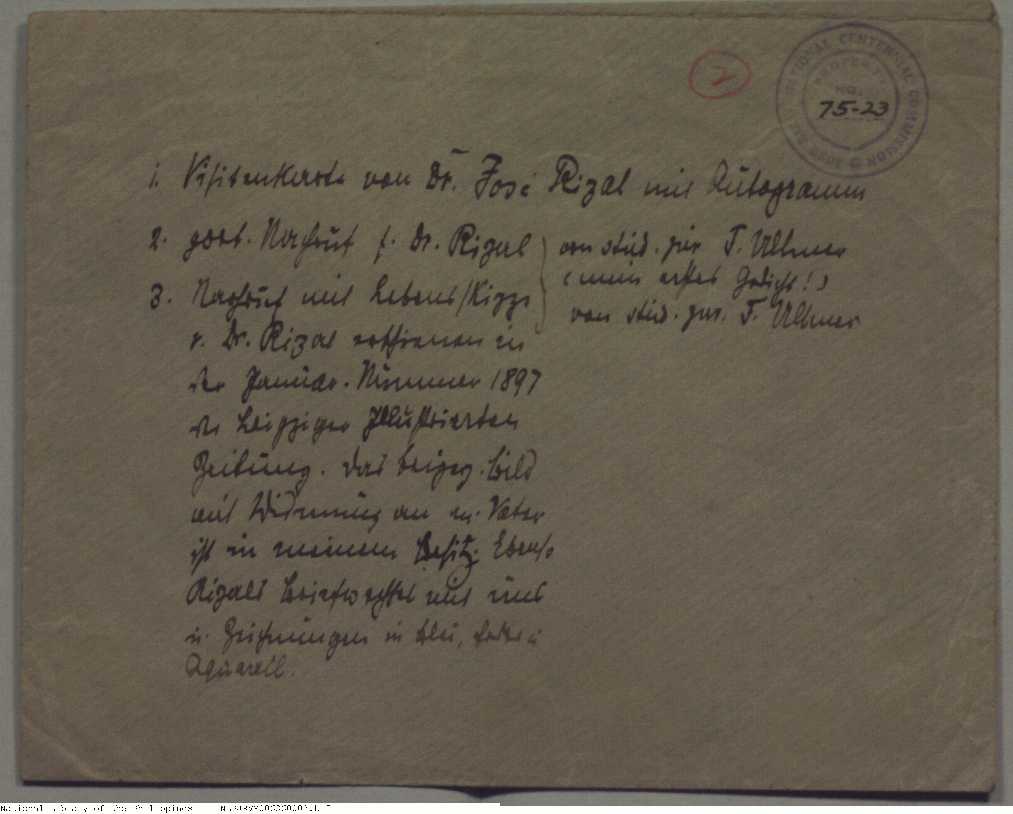 2
JOSE RIZAL NATIONAL CENTENNIAL COMMISSION
PROPERTY
75-23
1. Visitenkarte von Dr. José Rizal mit Autogramm
2. poet. Nachruf f. Dr. Rizal } von stud. jur. F. Ullmer
(mein erstes Gedicht!)
3. Nachruf mit Lebensskizze } von stud. jur. F. Ullmer
v. Dr. Rizal erschienen in
der Januar-Nummer 1897
der Leipziger Illustrierten
Zeitung. Das beigeg. Bild
mit Widmung an m. Vater
ist in meinem Besitz. Ebenso
Rizals Briefwechsel mit uns
u. Zeichnungen in Blei, Feder u.
Aquarell.
National Library of the Philippines